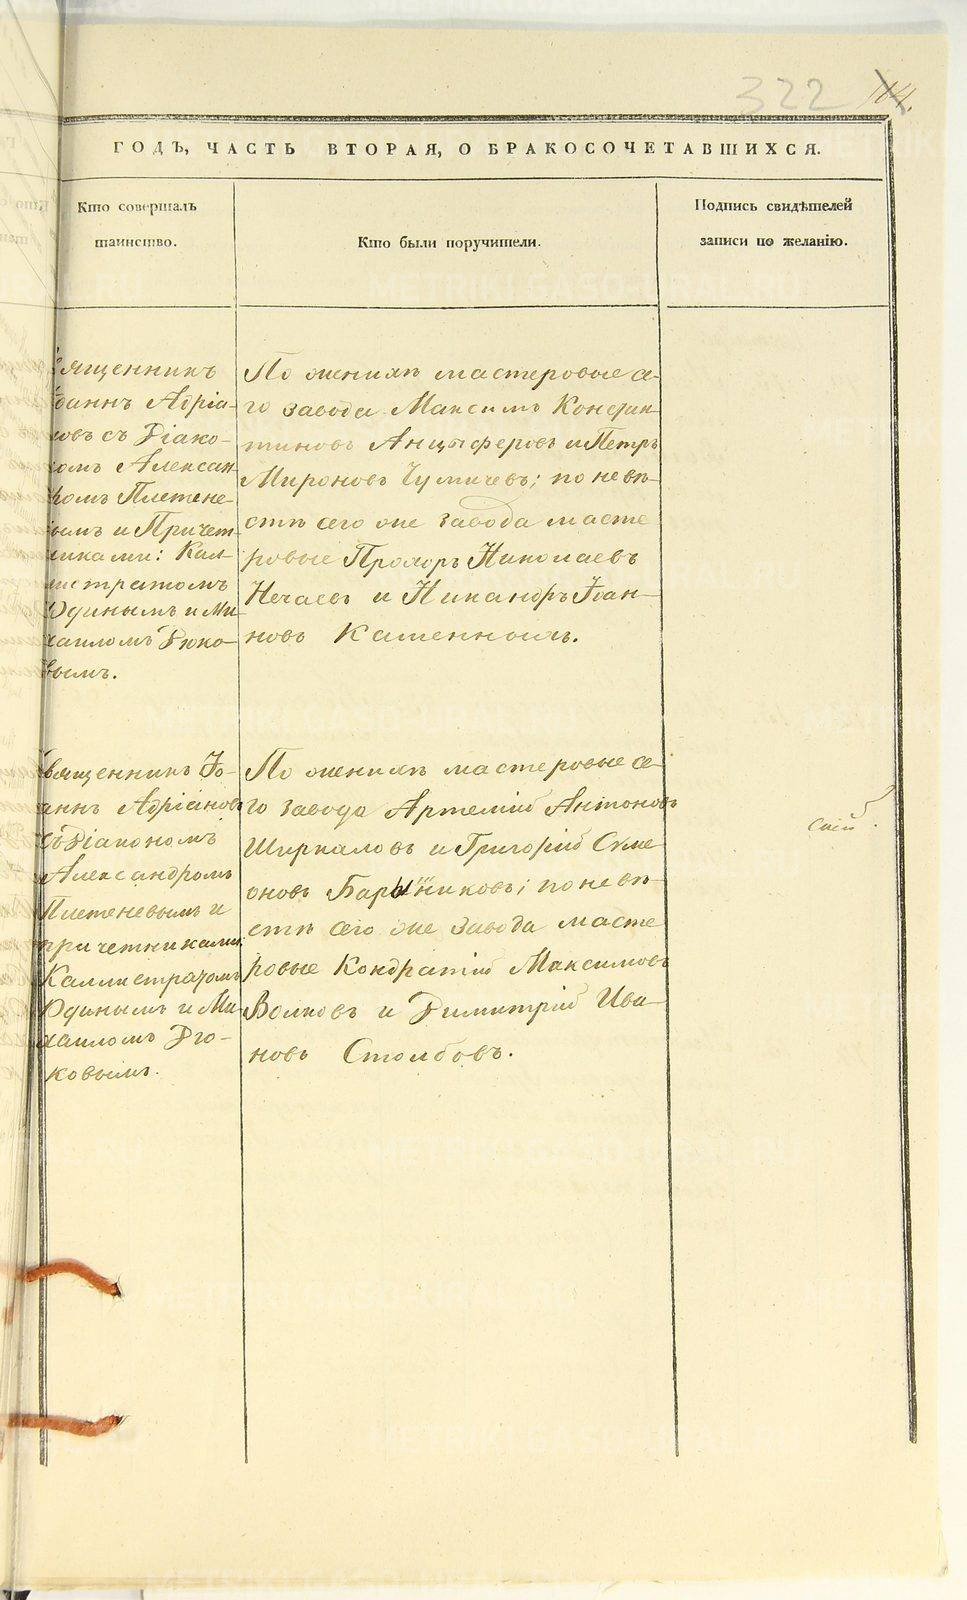 322
ГОДЪ, ЧАСТЬ ВТОРАЯ, О БРАКОСОЧЕТАВШИХСЯ.
Кто совершалъ
таинство.
Кто были поручители.
Подпись свидѣтелей
записи по желанію.
ященникъ
оаннъ Адріа-
новъ съ Діако-
номъ Алексан
ромъ Плетене-
вымъ и Причет
никами: Кал-
листратомъ
Юдинымъ и Ми
хаиломъ Дюко-
вымъ.
По женихѣ мастеровые се-
го завода Максимъ Констан-
тиновъ Анцыферовъ и Петръ
Мироновъ Чумичевъ; по невѣ-
стѣ сего же завода масте
ровые Прохоръ Николаевъ
Нечаевъ и Никандръ Іоан-
новъ Каменныхъ.
Священникъ Іо-
аннъ Адріановъ
съ Діакономъ
Александромъ
Плетеневымъ и
причетниками
Каллистратомъ
Юдинымъ и Ми
хаиломъ Дю-
ковымъ.
По женихѣ мастеровые се-
го завода Артемій Антоновъ
Ширкаловъ и Григорій Симе
оновъ Барынниковъ; по невѣ-
стѣ сего же завода масте
ровые Кондратій Максимовъ
Волковъ и Димитрій Ива-
новъ Столбовъ.
METRIKI.GASO-URAL.RU